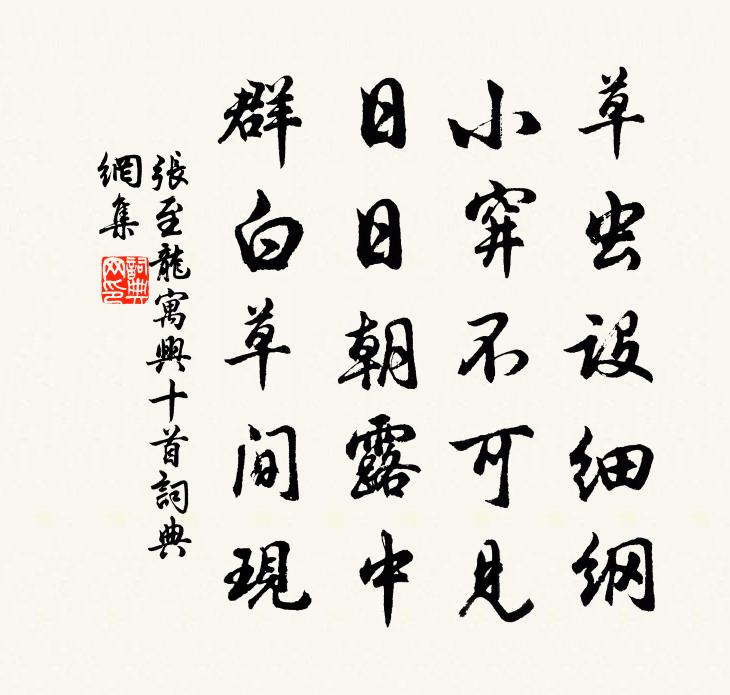 草虫设细纲
小穽不可見
日日朝露中
群白草间現
張至龍寓興十首詞典
網集
詞典
网印